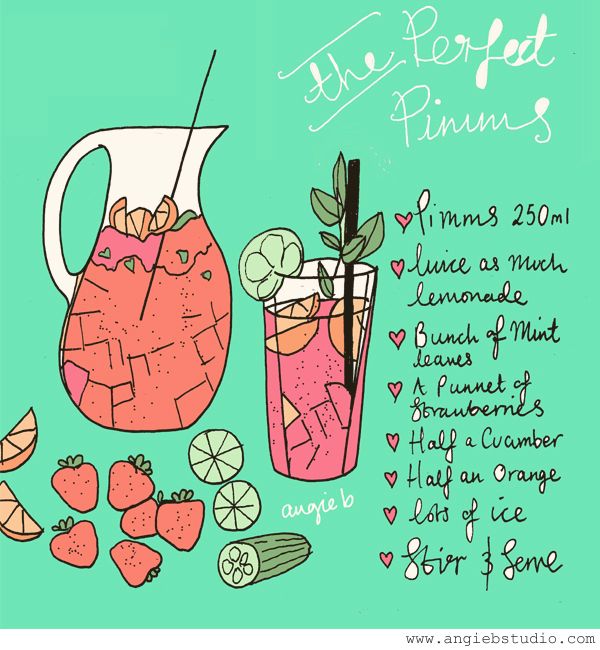 The Perfect
Pimms
Pimms 250ml
twice as much
lemonade
Bunch of Mint
leaves
A Punnet of
Strawberries
Half a Cucumber
Half an Orange
lots of ice
Stir & Serve
angie b
www.angiebstudio.com